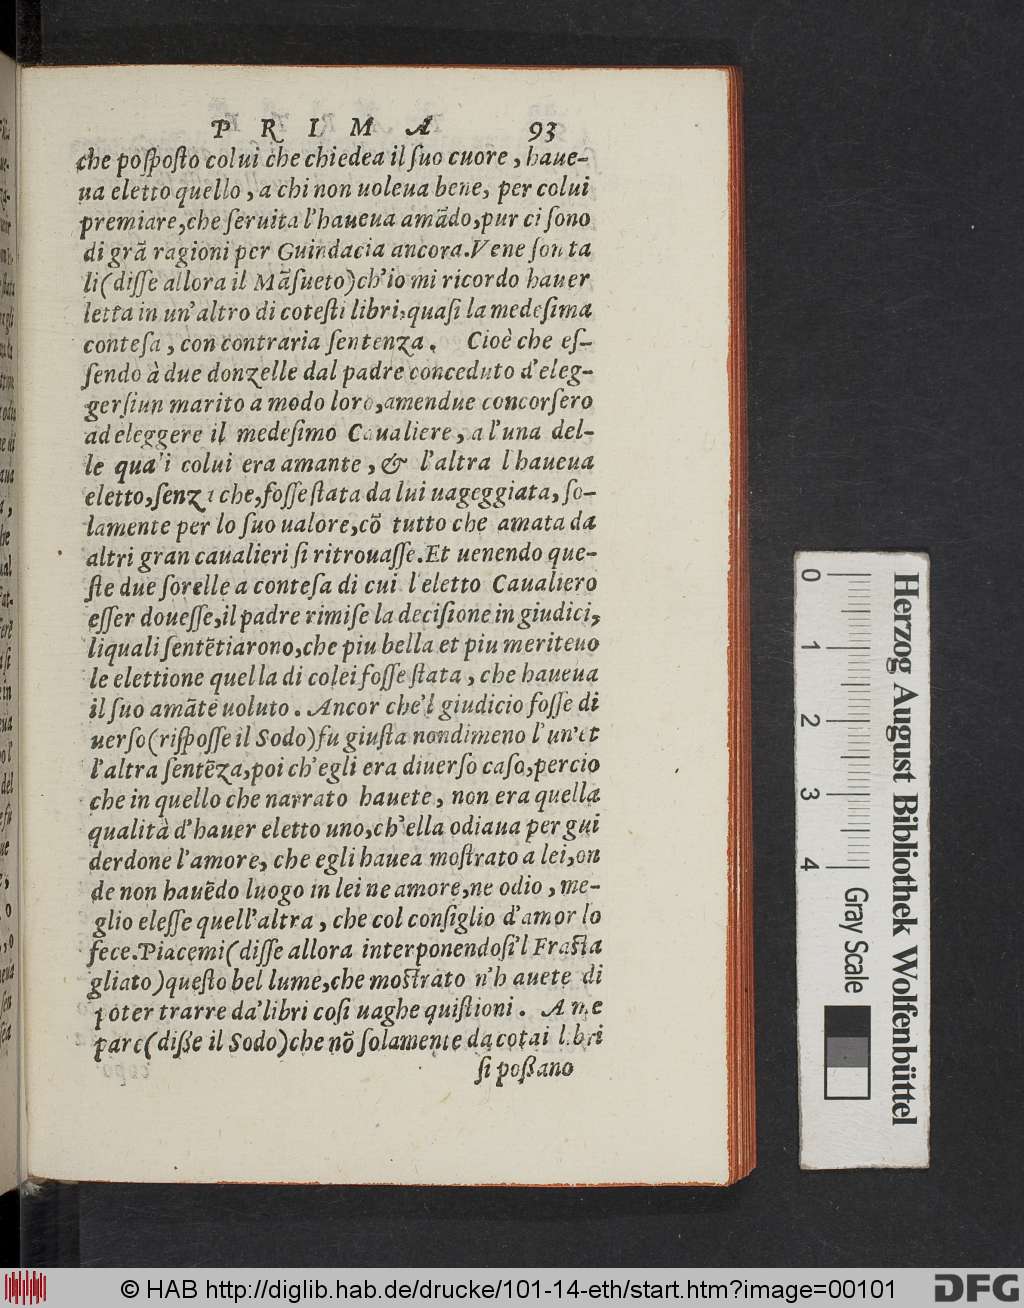 P R I M A 93
che poſpoſto colui che chiedea il ſuo cuore, haue-
ua eletto quello, a chi non uoleua bene, per colui
premiare, che ſeruita l'haueua amãdo, pur ci ſono
di grã ragioni per Guindacia ancora. Vene ſon ta
li (diſſe allora il Mãſueto) ch'io mi ricordo hauer
letta in un'altro di coteſti libri, quaſi la medeſima
conteſa, con contraria ſentenza. Cioè che eſ-
ſendo à due donzelle dal padre conceduto d'eleg-
gerſiun marito a modo loro, amendue concorſero
ad eleggere il medeſimo Caualiere, a l'una del-
le qua'i colui era amante, & l'altra l haueua
eletto, ſenza che, foſſe ſtata da lui uageggiata, ſo-
lamente per lo ſuo ualore, cõ tutto che amata da
altri gran caualieri ſi ritrouaſſe. Et uenendo que-
ſte due ſorelle a conteſa di cui l eletto Caualiero
eſſer doueſſe, il padre rimiſe la deciſione in giudici,
liquali ſentẽtiarono, che piu bella et piu meriteuo
le elettione quella di colei foſſe ſtata, che haueua
il ſuo amãte uoluto. Ancor che'l giudicio foſſe di
uerſo (riſpoſſe il Sodo) fu giuſta nondimeno l'un'et
l'altra ſentẽza, poi ch'egli era diuerſo caſo, percio
che in quello che narrato hauete, non era quella
qualità d'hauer eletto uno, ch'ella odiaua per gui
derdone l'amore, che egli hauea moſtrato a lei, on
de non hauẽdo luogo in lei ne amore, ne odio, me-
glio eleſſe quell'altra, che col conſiglio d'amor lo
fece. Piacemi (diſſe allora interponendoſi'l Fraſta
gliato) queſto bel lume, che moſtrato n'h auete di
poter trarre da'libri coſi uaghe quiſtioni. A me
pare (diſſe il Sodo) che nõ ſolamente da cotai libri
ſi poßano
0 1 2 3 4 Gray Scale
Herzog August Bibliothek Wolfenbüttel
© HAB http://diglib.hab.de/drucke/101-14-eth/start.htm?image=00101
DFG